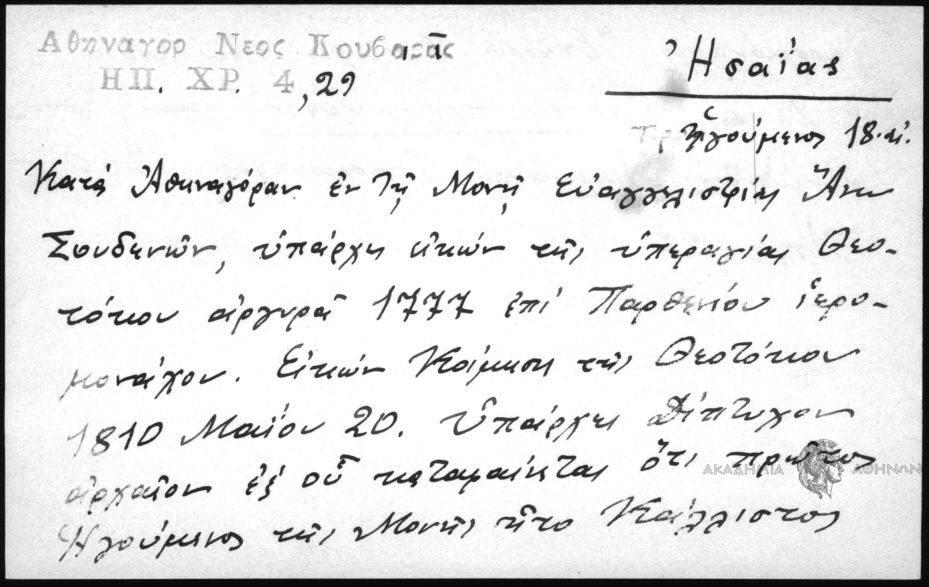 Ἀθηναγορ Νεος Κουβαρᾶς
ΗΠ. ΧΡ. 4, 29
Ἡσαΐας
Ἡγούμενος 18. αἰ.
Κατὰ Ἀθηναγόραν ἐν τῇ Μονῇ Εὐαγγελιστρίας Ἄνω
Σουδενῶν, ὑπάρχει εἰκών τῆς ὑπεραγίας Θεο-
τόκου ἀργυρᾶ 1777 ἐπί Παρθενίου ἱερο-
μονάχου. Εἰκών Κοίμησις τῆς Θεοτόκου
1810 Μαΐου 20. Ὑπάρχει Δίπτυχον
ἀρχαῖον ἐξ οὗ καταφαίνεται ὅτι πρῶτος
ΑΚΑΔΗΜΙΑ ΑΘΗΝΩΝ
Ἡγούμενος τῆς Μονῆς ἦτο Κάλλιστος